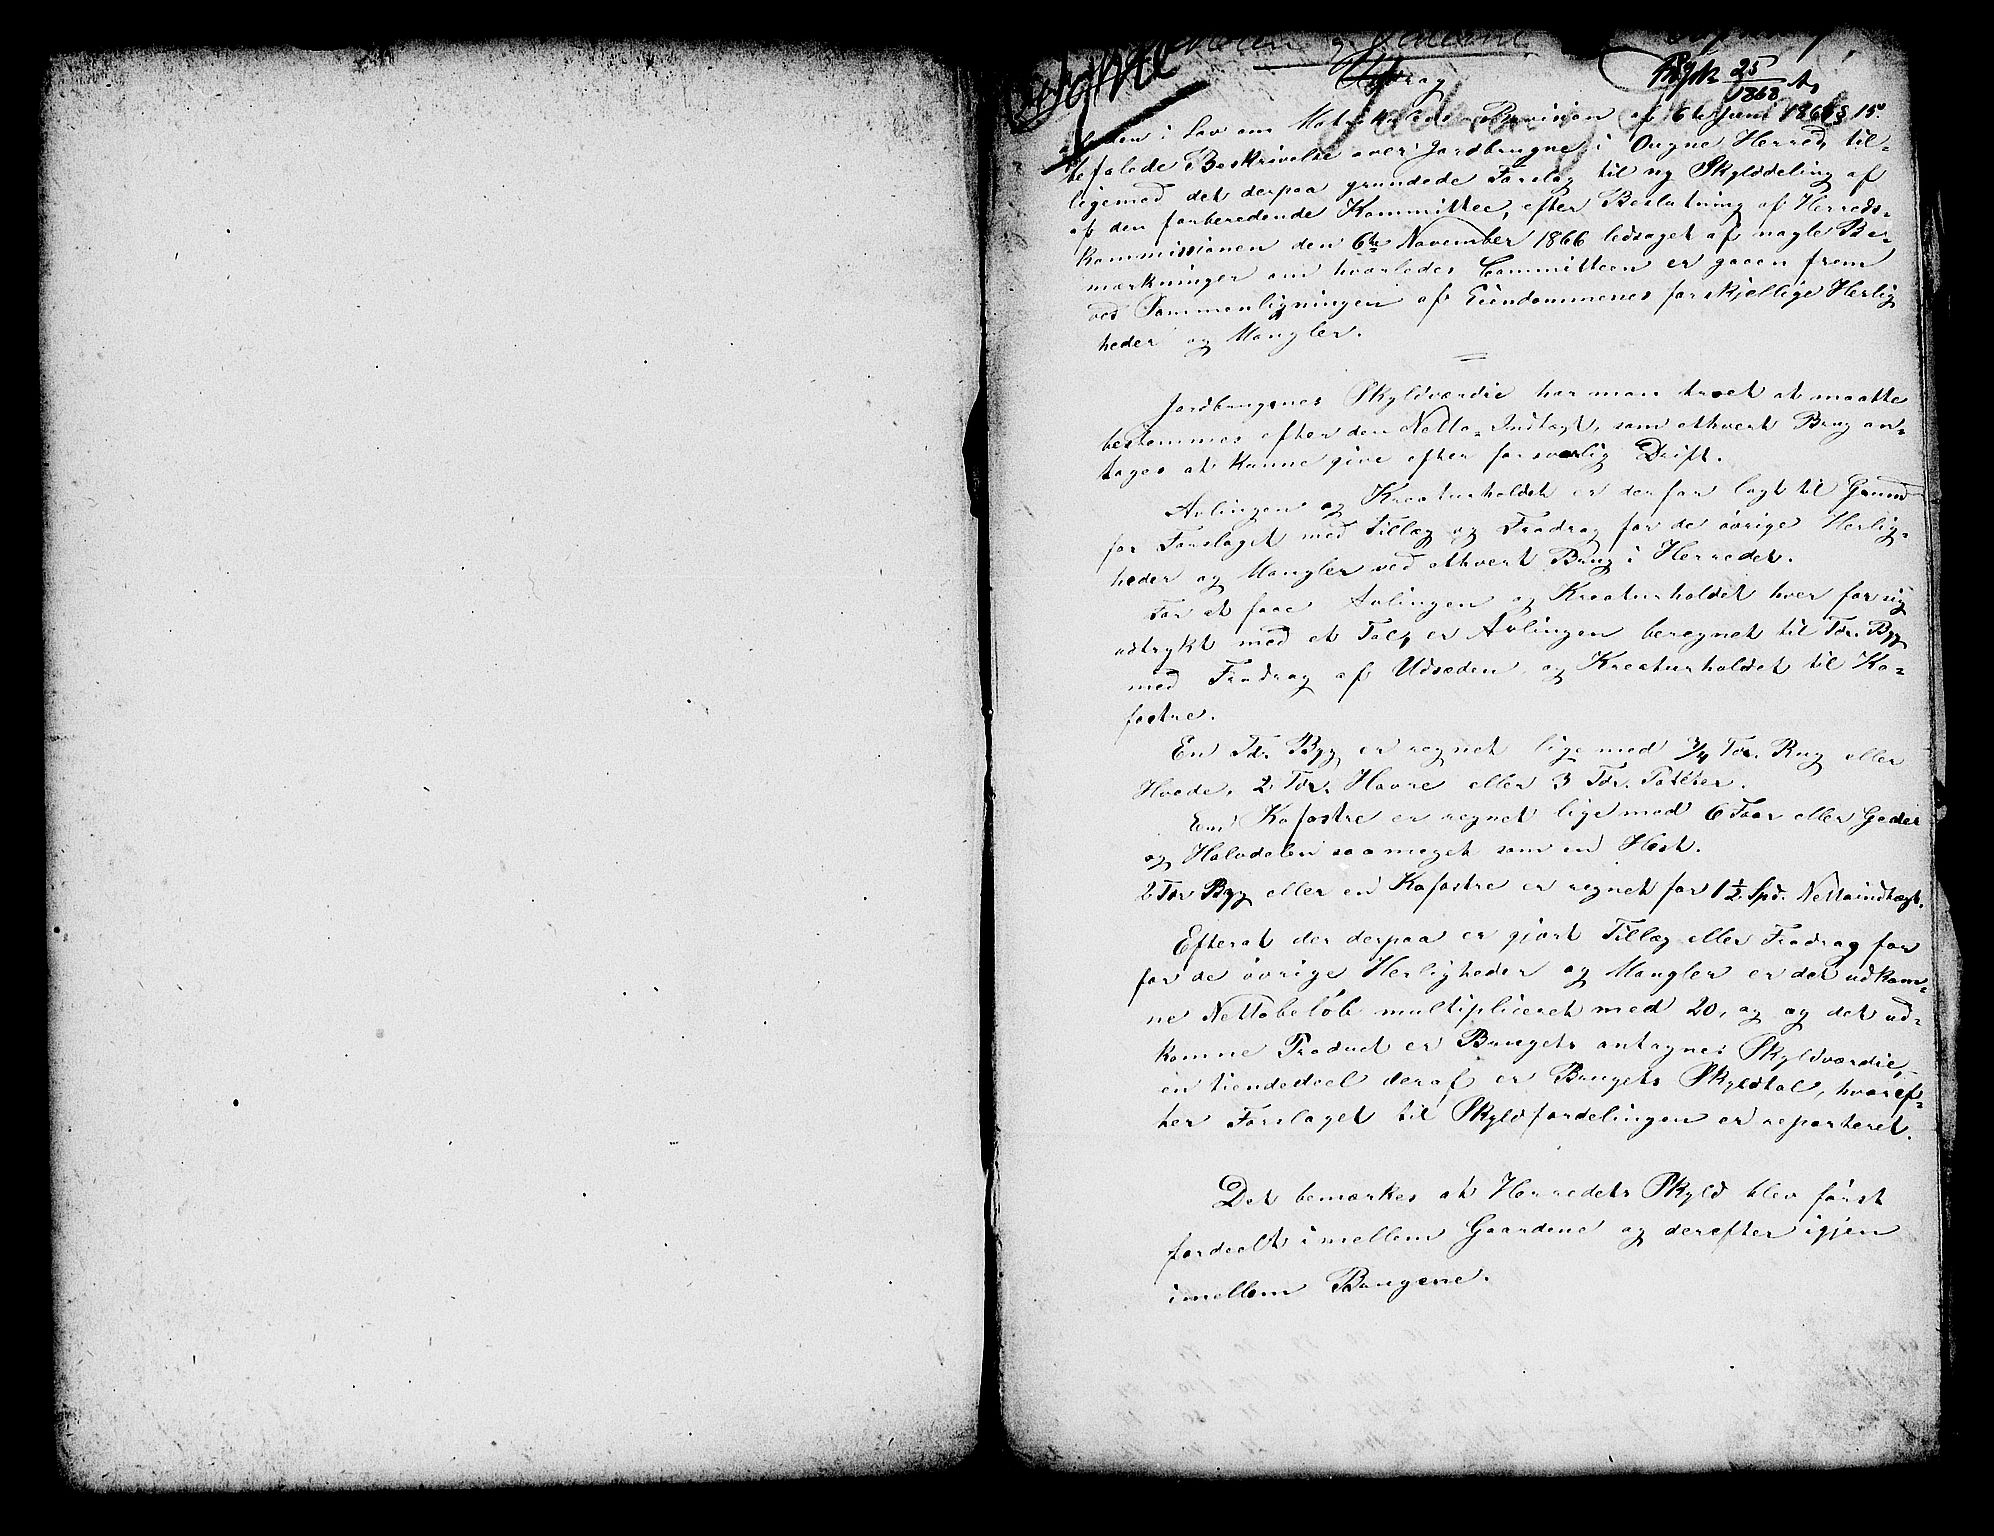 Udtrag
af den i Lov om Matrikulens Revision af 6te Juni 1863 § 15
befalede Beskrivelse over Jordbrugene i Ougne Herred, til-
ligemed det derpaa grundede Forslag til ny Skylddeling af
af den forberedende Kommittee, efter Beslutning af Herreds-
kommissionen den 6te November 1866 ledsaget af nogle Be-
mærkninger om hvorledes Committeen er gaaen frem
ved Sammenligningen af Eiendommenes forskjellige Herlig
heder og Mangler.
Jordbrugenes Skyldværdie har man troet at maatte
bestemmes efter den Netto-Indtægt, som ethvert Brug an-
tages at kunne give efter forsvarlig Drift.
Avlingen og Kreaturholdet er derfor lagt til Grund
for Forslaget med Tillæg og Fradrag for de øvrige Herlig-
heder og Mangler ved ethvert Brug i Herredet.
For at faae Avlingen og Kreaturholdet hver for sig
udtrykt med et Tal, er Avlingen beregnet til Tdr. Byg
med Fradrag af Udsæden og Kreaturholdet til Ko-
fostre.
En Tdr. Byg er regnet lige med 3/4 Tdr. Rug eller
Hvede, 2 Tdr. Havre eller 3 Tdr. Poteter.
Em Kofostre er regnet lige med 6 Faar eller Geder
og Halvdelen saa meget som en Hest.
2 Tdr Byg eller en Kofostre er regnet for 1 1/2 Spd. Nettoindtægt.
Efterat der derpaa er gjort Tillæg eller Fradrag for
for de øvrige Herligheder og Mangler er det udkom-
ne Nettobeløb multipliceret med 20, og og det ud-
komne Product er Brugets antagne Skyldværdie,
en tiendedeel deraf er Brugets Skyldtal, hvoref-
ter Forslaget til Skyldfordelingen er reparteret.
Det bemærkes at Herredets Skyld blev først
fordeelt imellem Gaardene og derefter igjen
imellem Brugene.